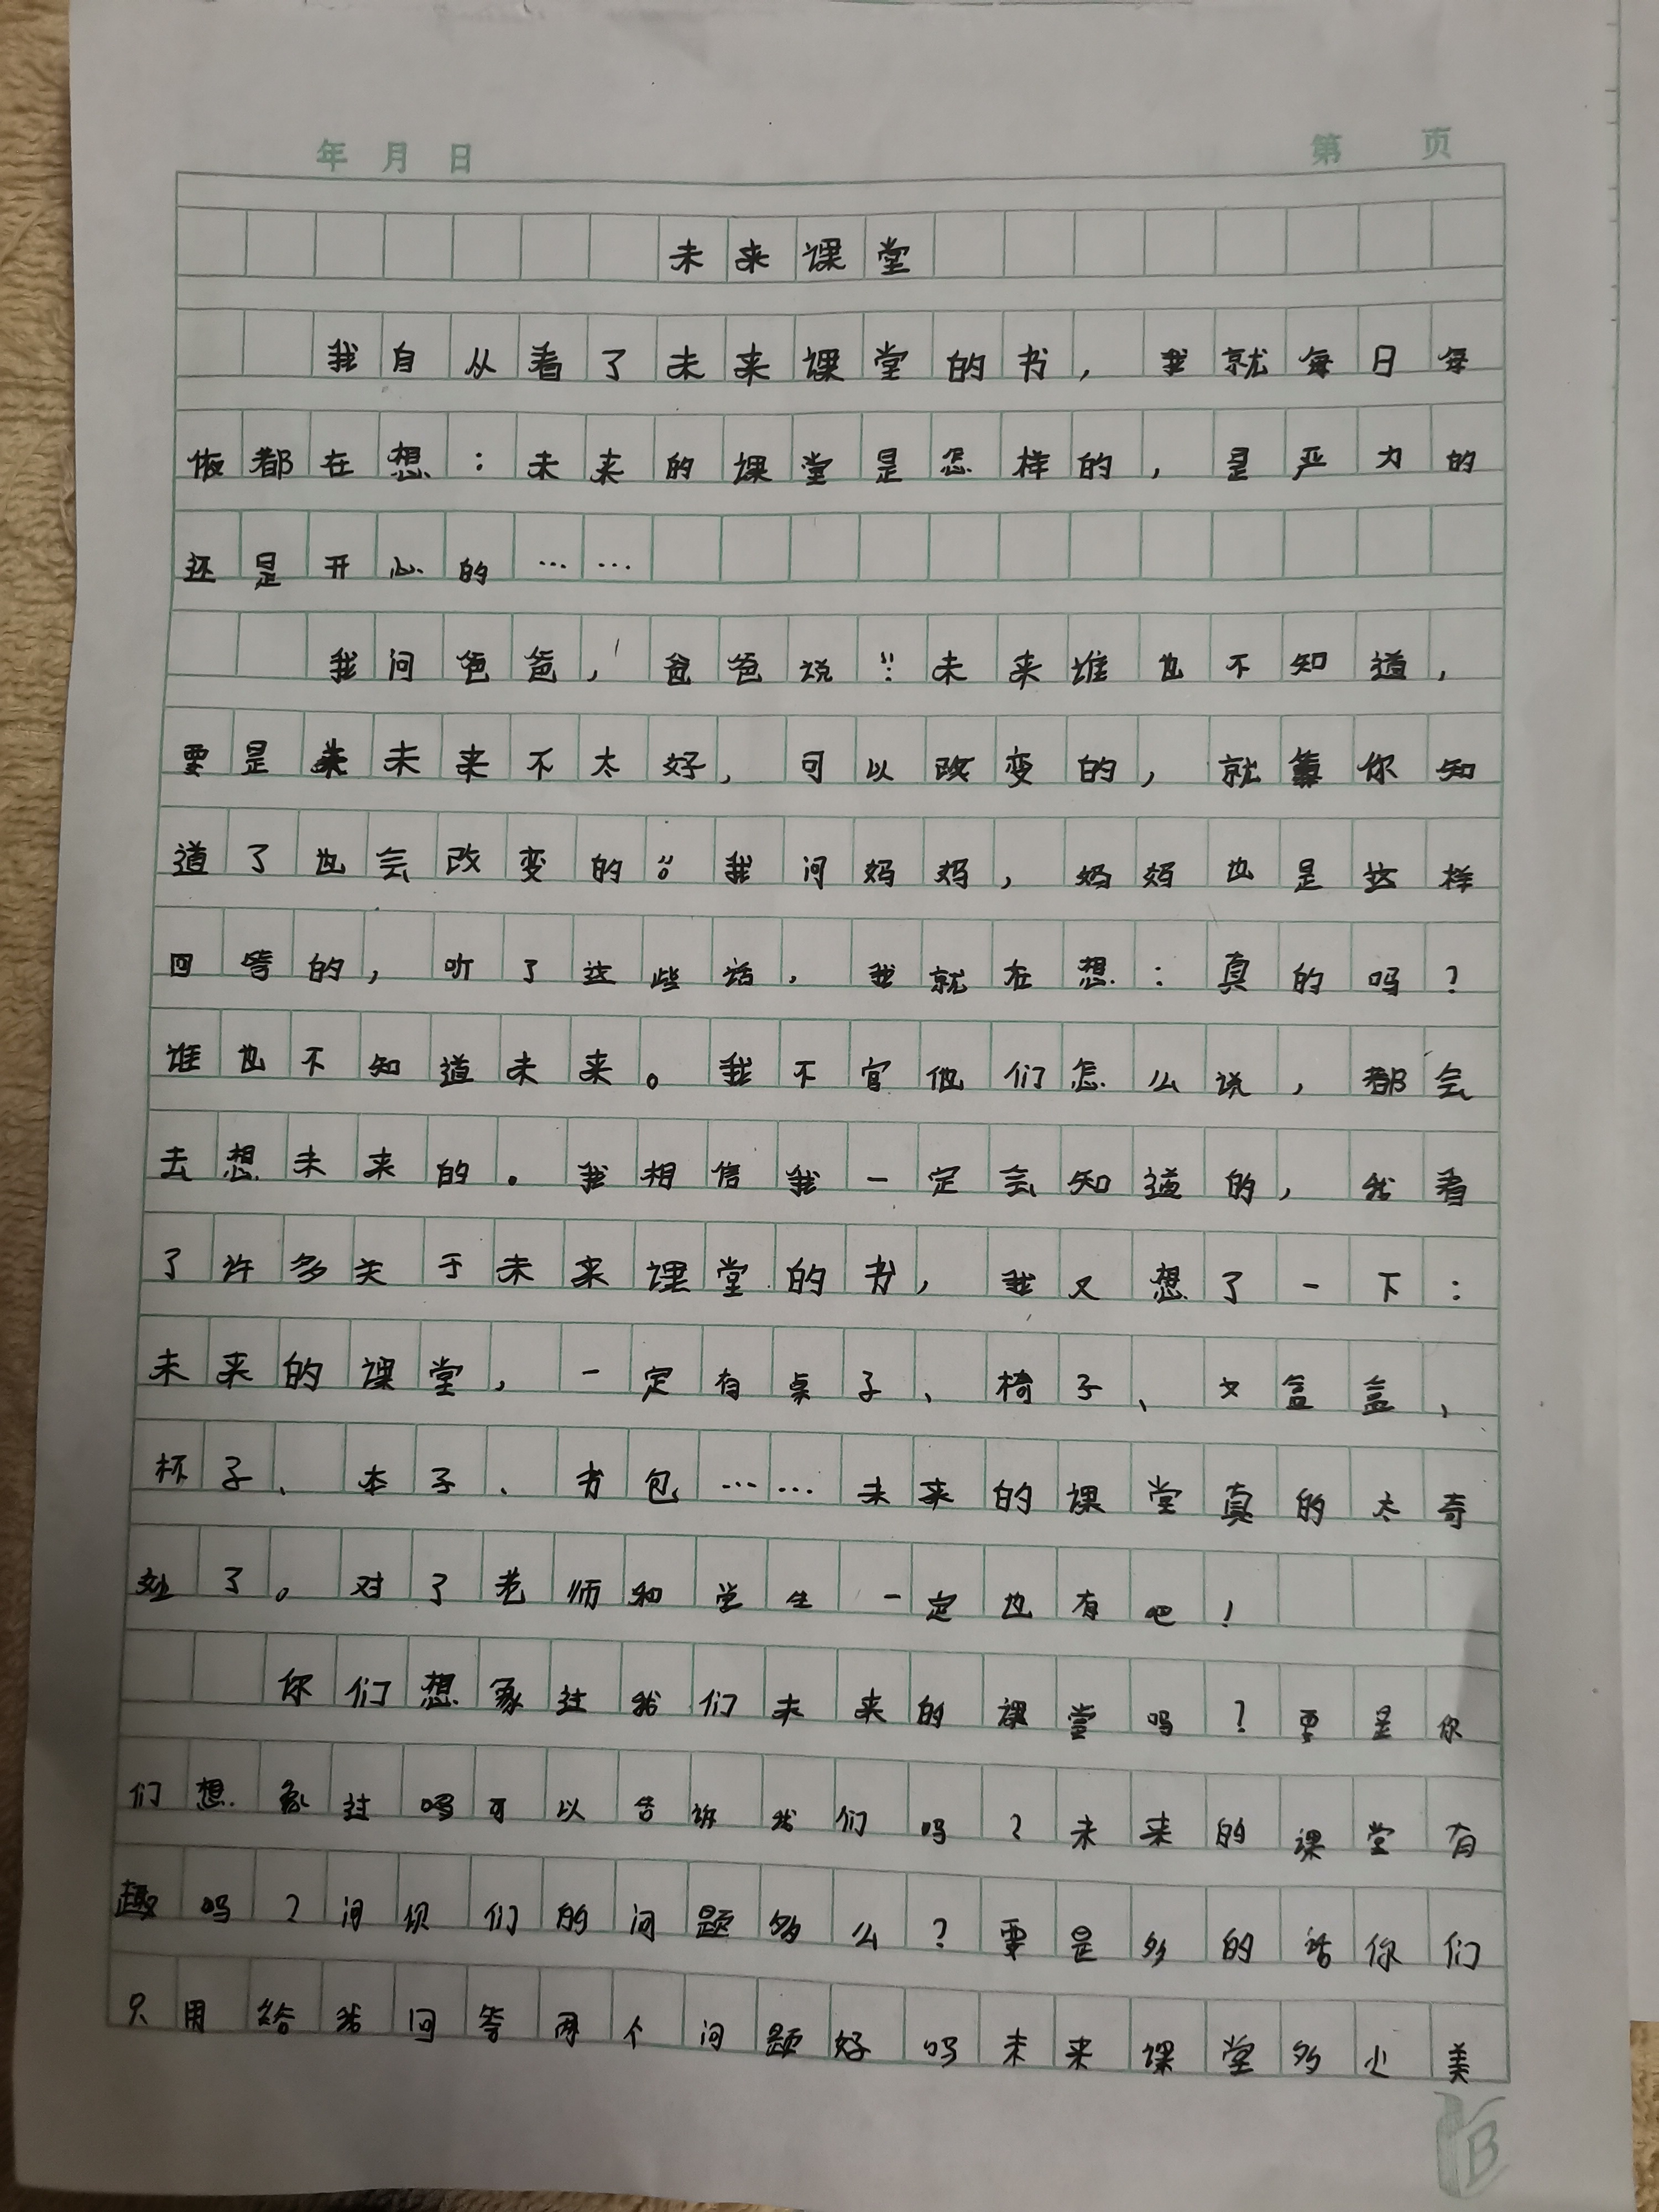 年 月 日 第 页
未来课堂
我自从看了未来课堂的书，我就每日每
夜都在想：未来的课堂是怎样的，是严力的
还是开心的……
我问爸爸，爸爸说：“未来谁也不知道，
要是未来不太好，可以改变的，就算你知
道了也会改变的。”我问妈妈，妈妈也是这样
回答的，听了这些话，我就在想：真的吗？
谁也不知道未来。我不官他们怎么说，都会
去想未来的。我相信我一定会知道的，我看
了许多关于未来课堂的书，我又想了一下：
未来的课堂，一定有桌子、椅子、文盒盒、
杯子、本子、书包……未来的课堂真的太奇
处了。对了老师和学生一定也有吧！
你们想象过我们未来的课堂吗？要是你
们想象过吗可以告诉我们吗？未来的课堂有
趣吗？问你们的问题多么？要是多的话你们
只用给我回答两个问题好吗未来课堂多少美
B